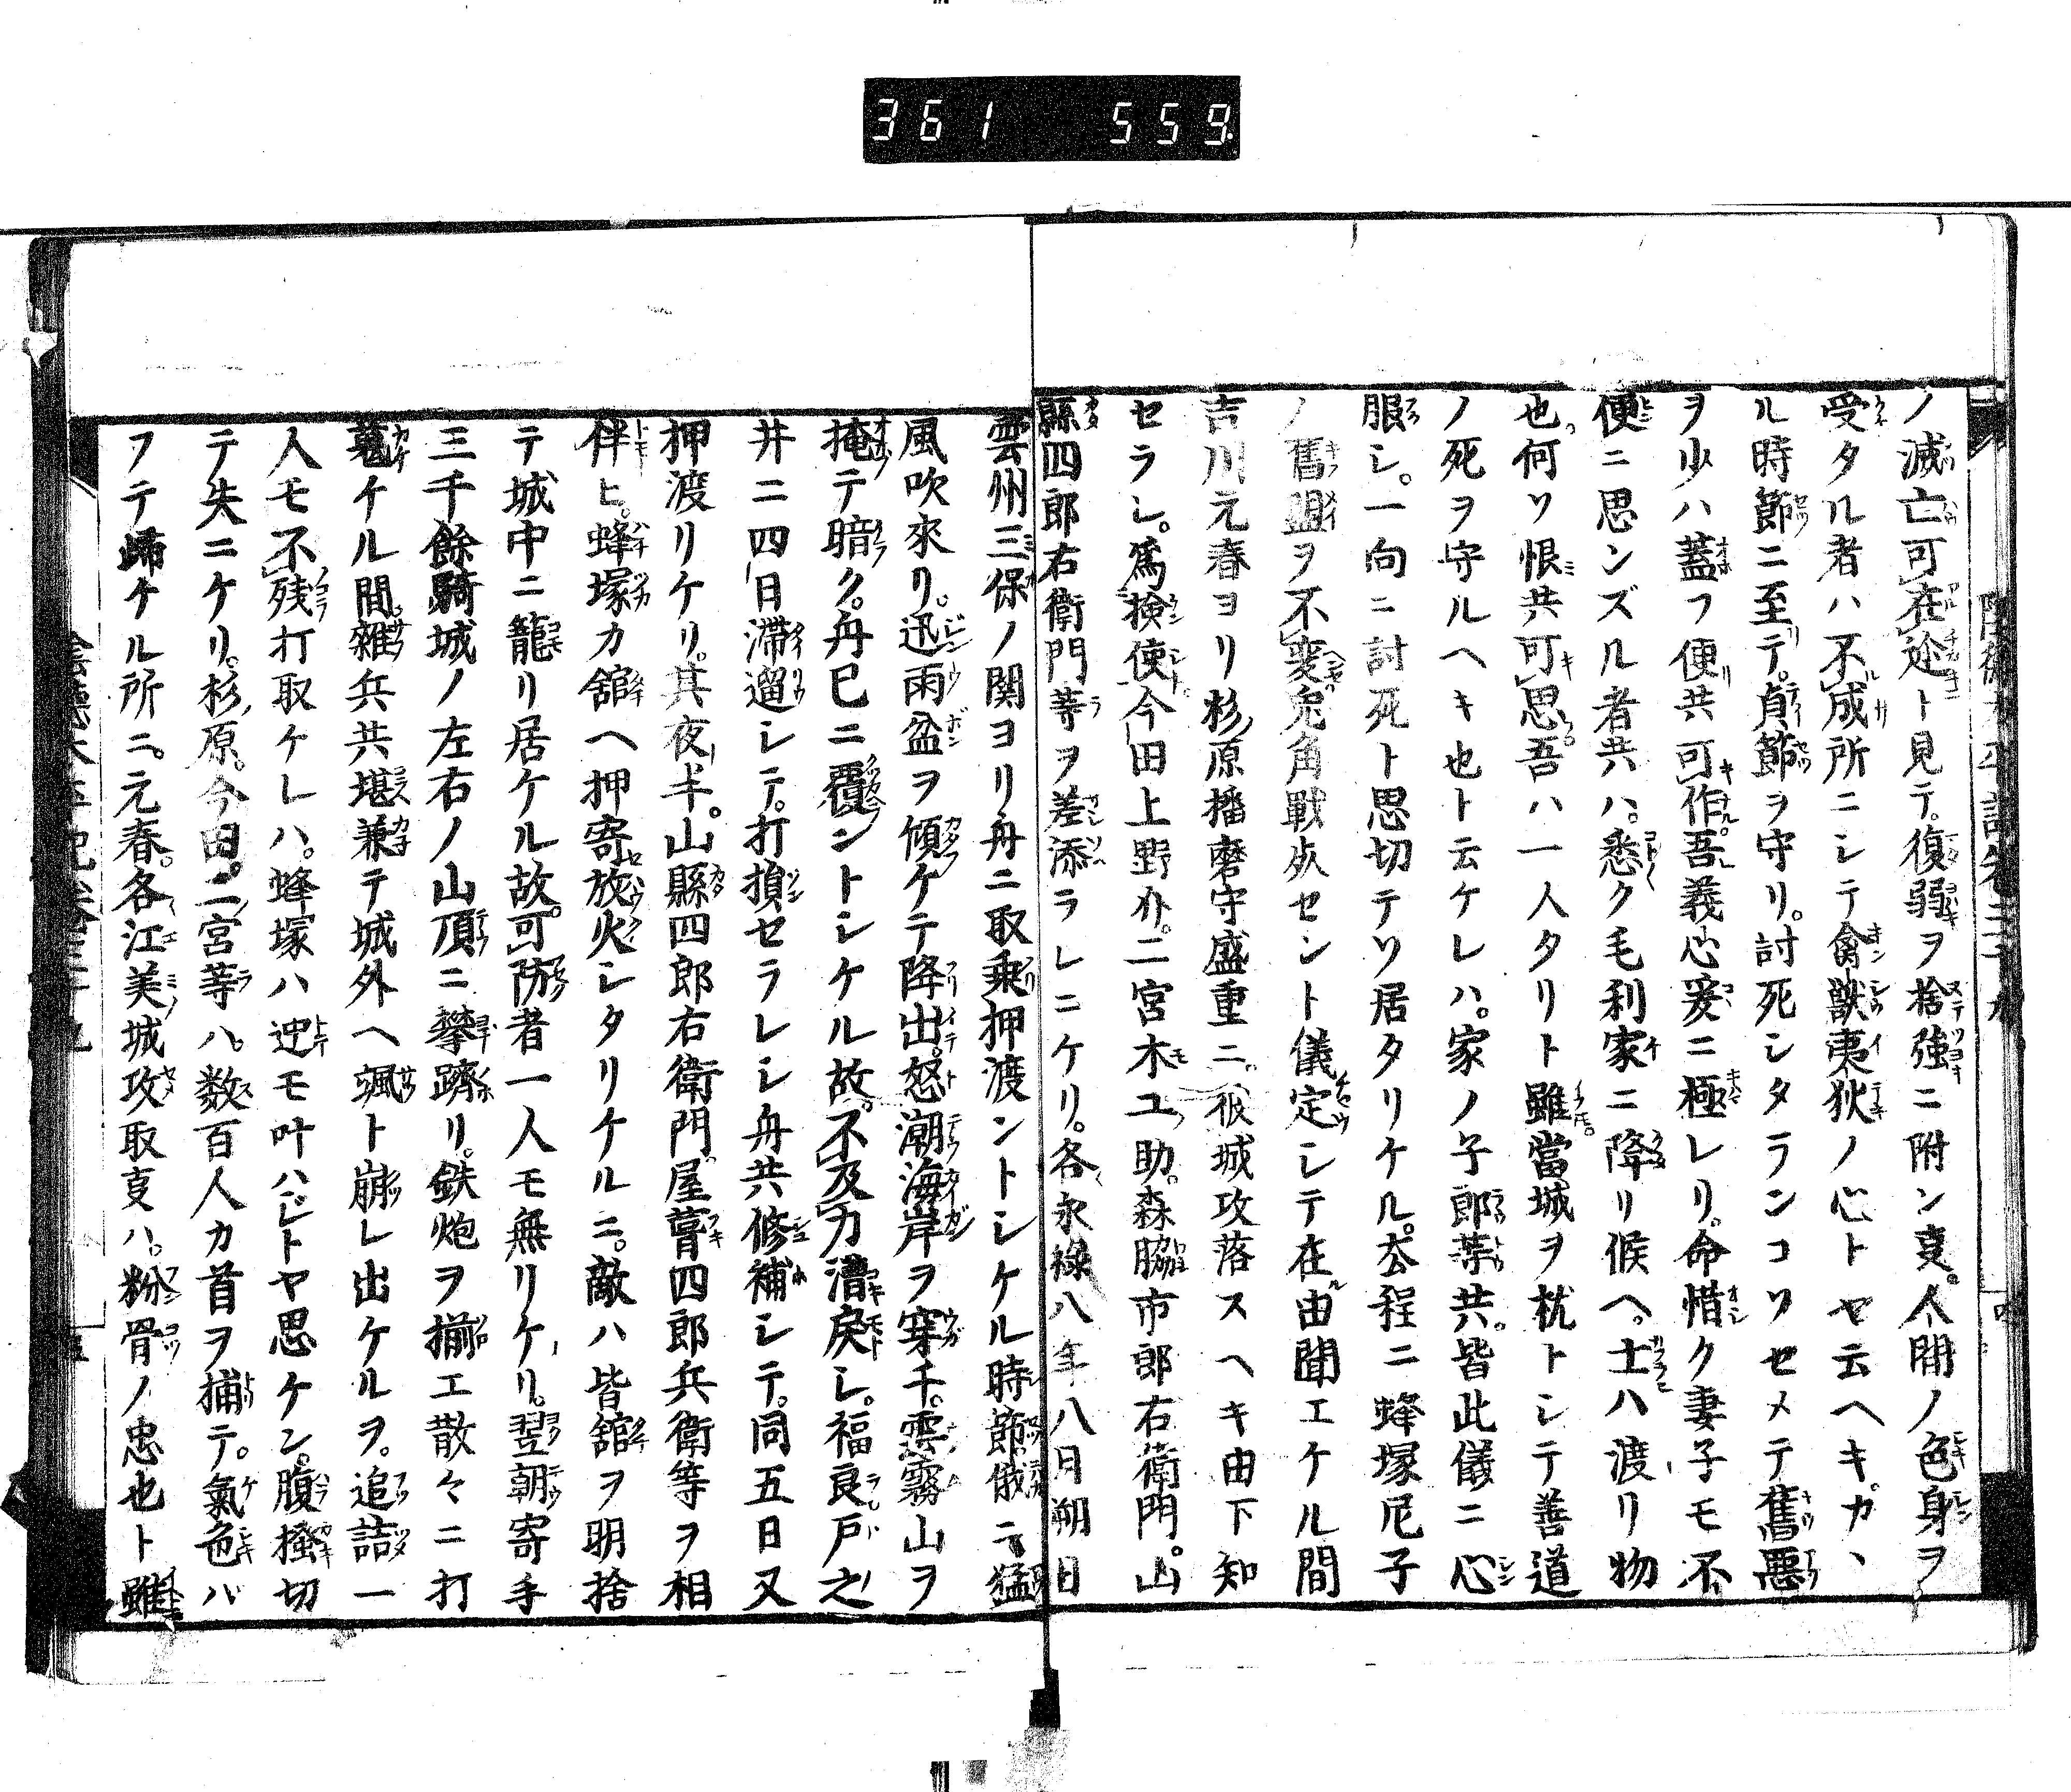 361 559
ノ滅亡可在近ト見テ。復弱ヲ捨強ニ附ン㕝。人間ノ色身ヲ
受タル者ハ不成所ニシテ禽獣夷狄ノ心トヤ云ヘキ。カヽ
ル時節ニ至テ。貞節ヲ守リ。討死シタランコソセメテ舊悪
ヲ少ハ蓋フ便共可作。吾義心爰ニ極レリ。命惜ク妻子モ不
便ニ思ンズル者共ハ。悉ク毛利家ニ降リ候ヘ。士ハ渡リ物
也。何ソ恨共可思。吾ハ一人タリト雖。當城ヲ枕トシテ善道
ノ死ヲ守ルヘキ也ト云ケレハ。家ノ子郎等共。皆此儀ニ心
服シ。一向ニ討死ト思切テソ居タリケル。去程ニ蜂塚尼子
ノ舊盟ヲ不変。兎角戰死セント儀定シテ在由聞エケル間
吉川元春ヨリ杉原播磨守盛重ニ。彼城攻落スヘキ由下知
セラレ。為検使今田上野介。二宮木工助。森脇市郎右衛門。山
縣四郎右衛門等ヲ差添ラレニケリ。各永禄八年八月朔日
雲州三保ノ関ヨリ舟ニ取乗押渡ントシケル時節。俄ニ猛
風吹來リ。迅雨盆ヲ傾ケテ降出。怒潮海岸ヲ穿チ。雲霧山ヲ
掩テ暗ク。舟已ニ覆ントシケル故。不及力漕戻シ。福良戸之
井ニ四日滞遛シテ。打損セラレシ舟共修補シテ。同五日又
押渡リケリ。其夜半。山縣四郎右衛門。屋葺四郎兵衛等ヲ相
伴ヒ。蜂塚カ舘ヘ押寄放火シタリケルニ。敵ハ皆舘ヲ明捨
テ城中ニ籠リ居ケル故。可防者一人モ無リケリ。翌朝寄手
三千餘騎城ノ左右ノ山頂ニ攀躋リ。鉄炮ヲ揃エ散々ニ打
懸ケル間。雜兵共堪兼テ城外ヘ颯ト崩レ出ケルヲ。追詰一
人モ不残打取ケレハ。蜂塚ハ迚モ叶ハジトヤ思ケン。腹掻切
テ失ニケリ。杉原。今田。二宮等ハ。数百人カ首ヲ捕テ。氣色バ
フテ歸ケル所ニ。元春。各江美城攻取㕝ハ。粉骨ノ忠也ト雖